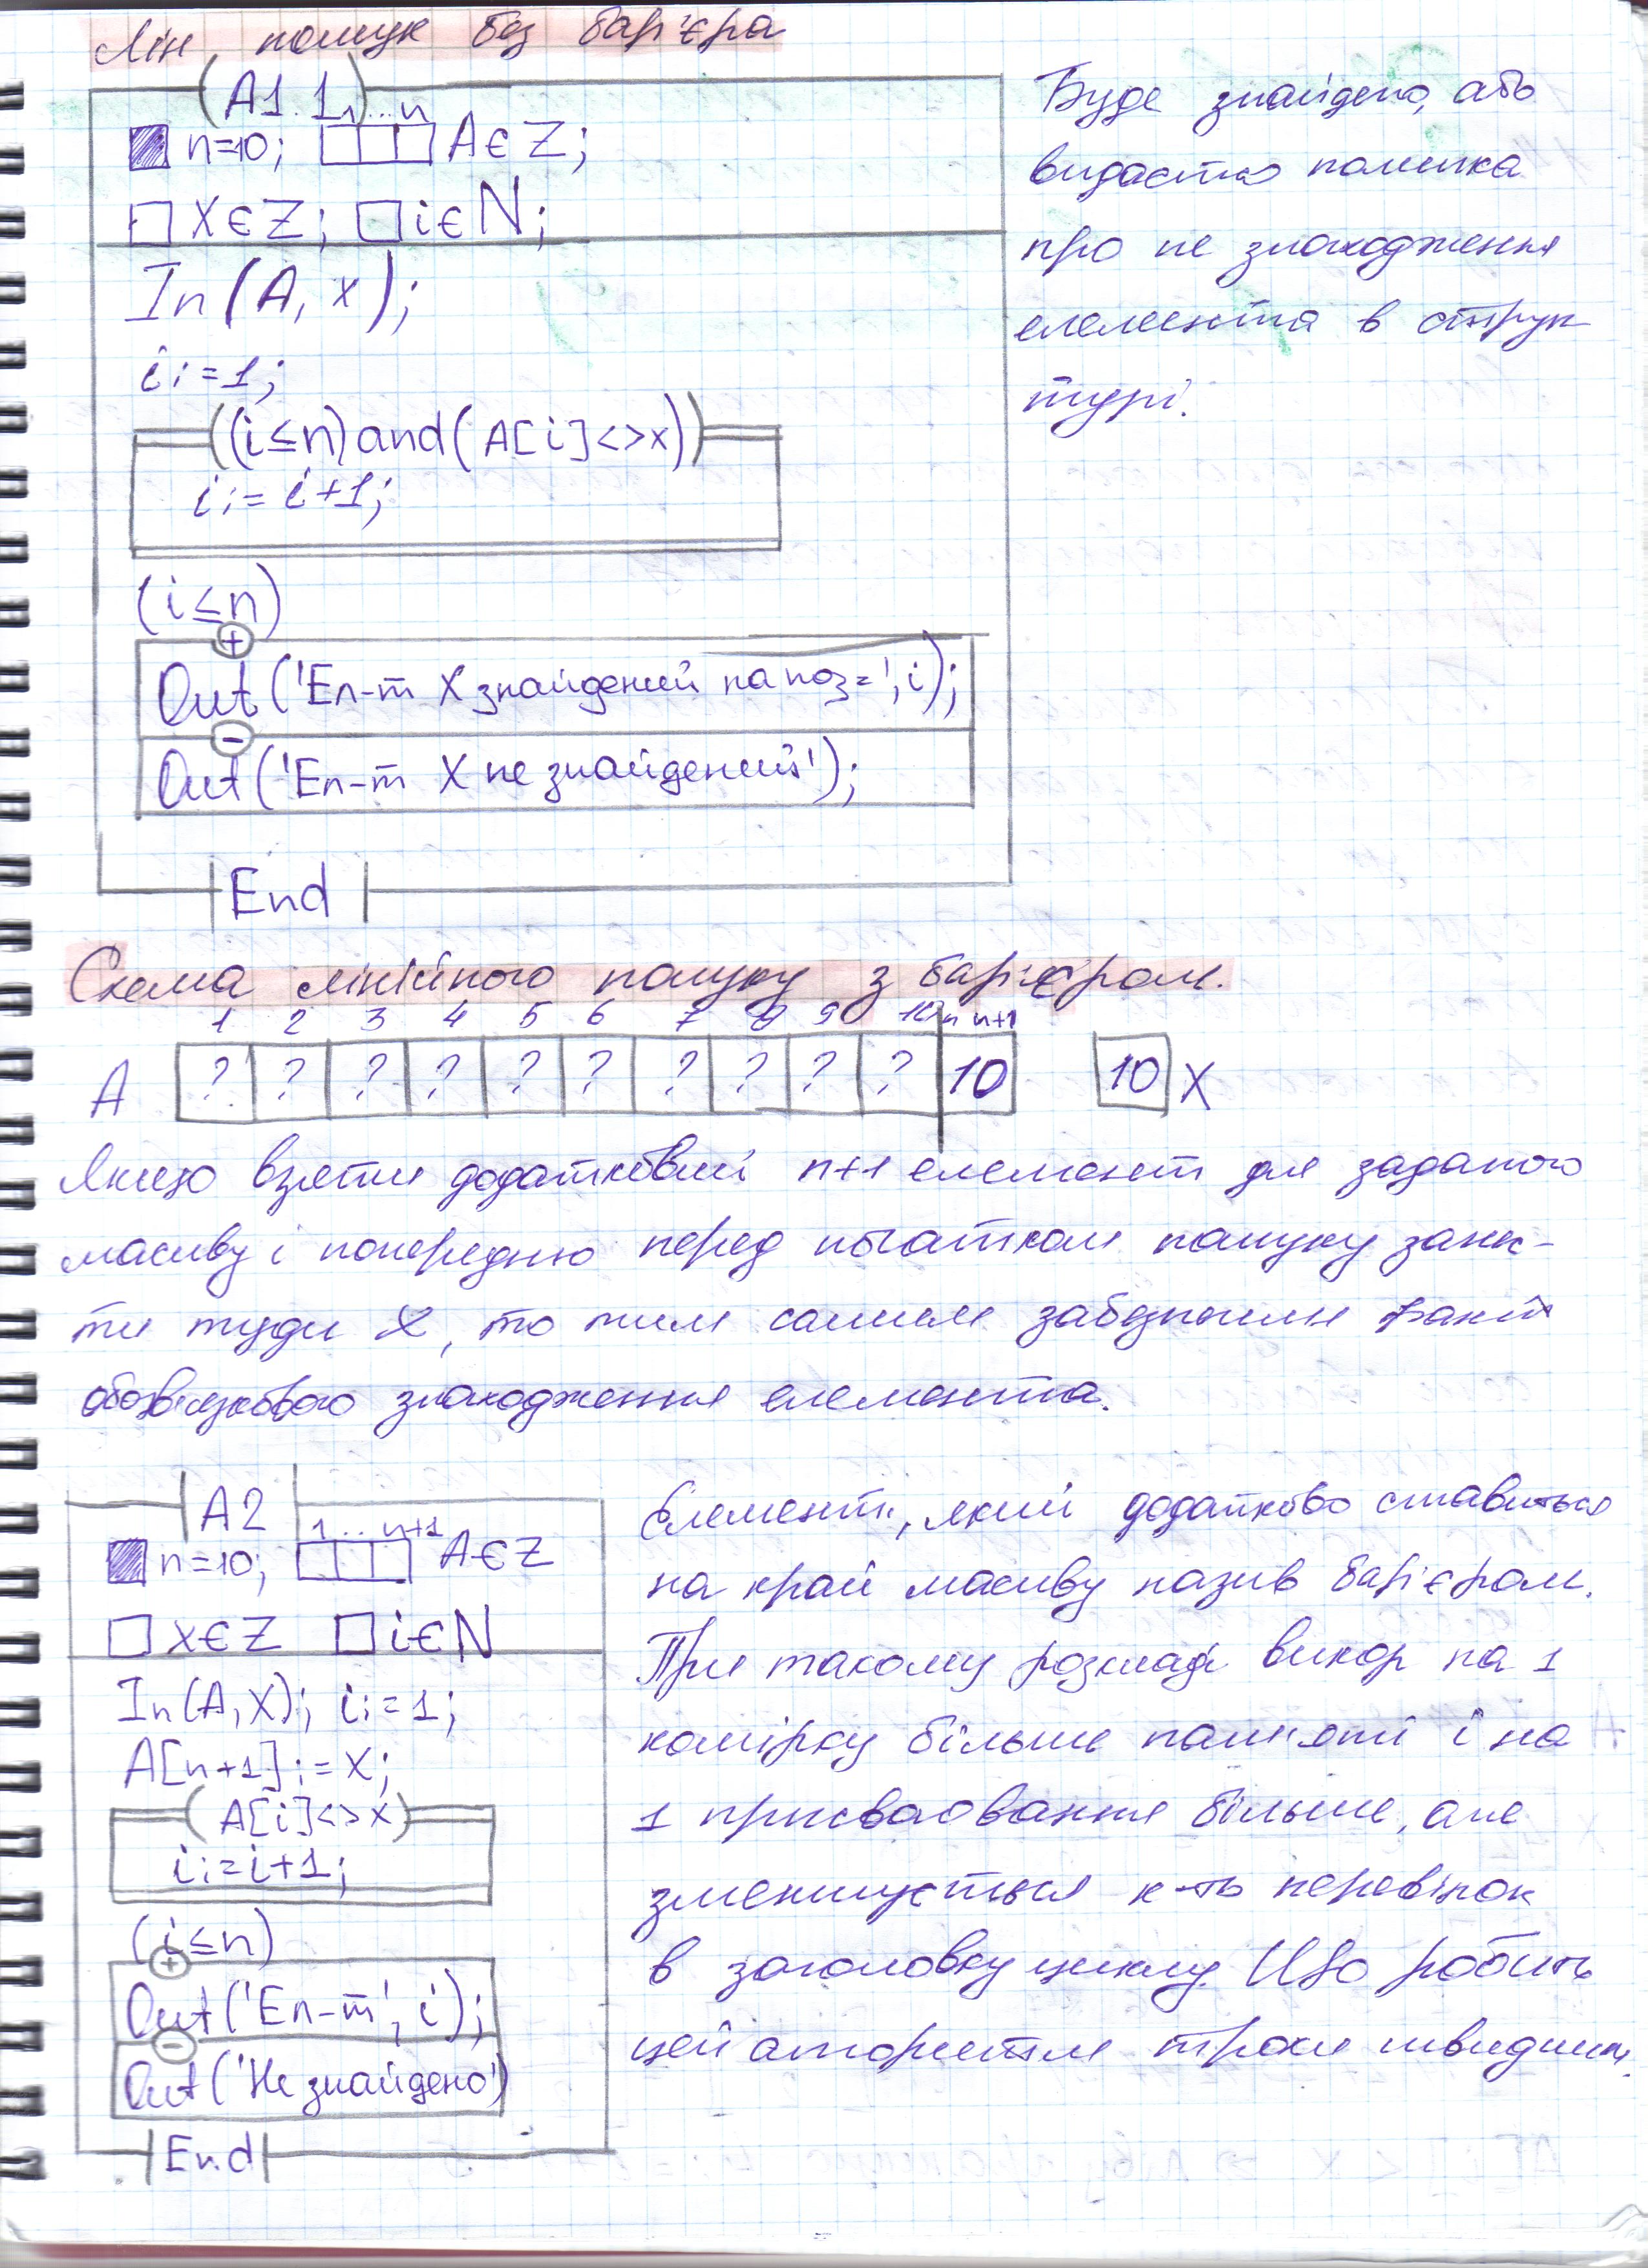 Лін. пошук без бар'єра
A1. 1
1...n
n=10; A∈Z;
X∈Z; i∈N;
In(A, x);
i:=1;
((i≤n)and(A[i]<>x))
i:=i+1;
(i≤n)
+
Out('Ел-т X знайдений на поз=', i);
-
Out('Ел-т X не знайдений');
End
Буде знайдено, або
видасться помилка
про не знаходження
елемента в струк
турі.
Схема лінійного пошуку з бар'єром.
1 2 3 4 5 6 7 8 9 10 n n+1
A ? ? ? ? ? ? ? ? ? ? 10 10 X
Якщо взяти додатковий n+1 елемент для заданого
масиву і попередньо перед початком пошуку занес-
ти туди X, то тим самим забезпечим факт
обов'язкового знаходження елемента.
A2
1...n+1
n=10; A∈Z
x∈Z i∈N
In(A,X); i:=1;
A[n+1]:=X;
(A[i]<>x)
i:=i+1;
(i≤n)
+
Out('Ел-т', i);
-
Out('Не знайдено')
End
Елемент, який додатково ставиться
на край масиву назив бар'єром.
При такому розкладі викор на 1
комірку більше пам'яті і на
1 присваювання більше, але
зменшується к-ть перевірок
в заголовку циклу. Що робить
цей алгоритм трохи швидшим.